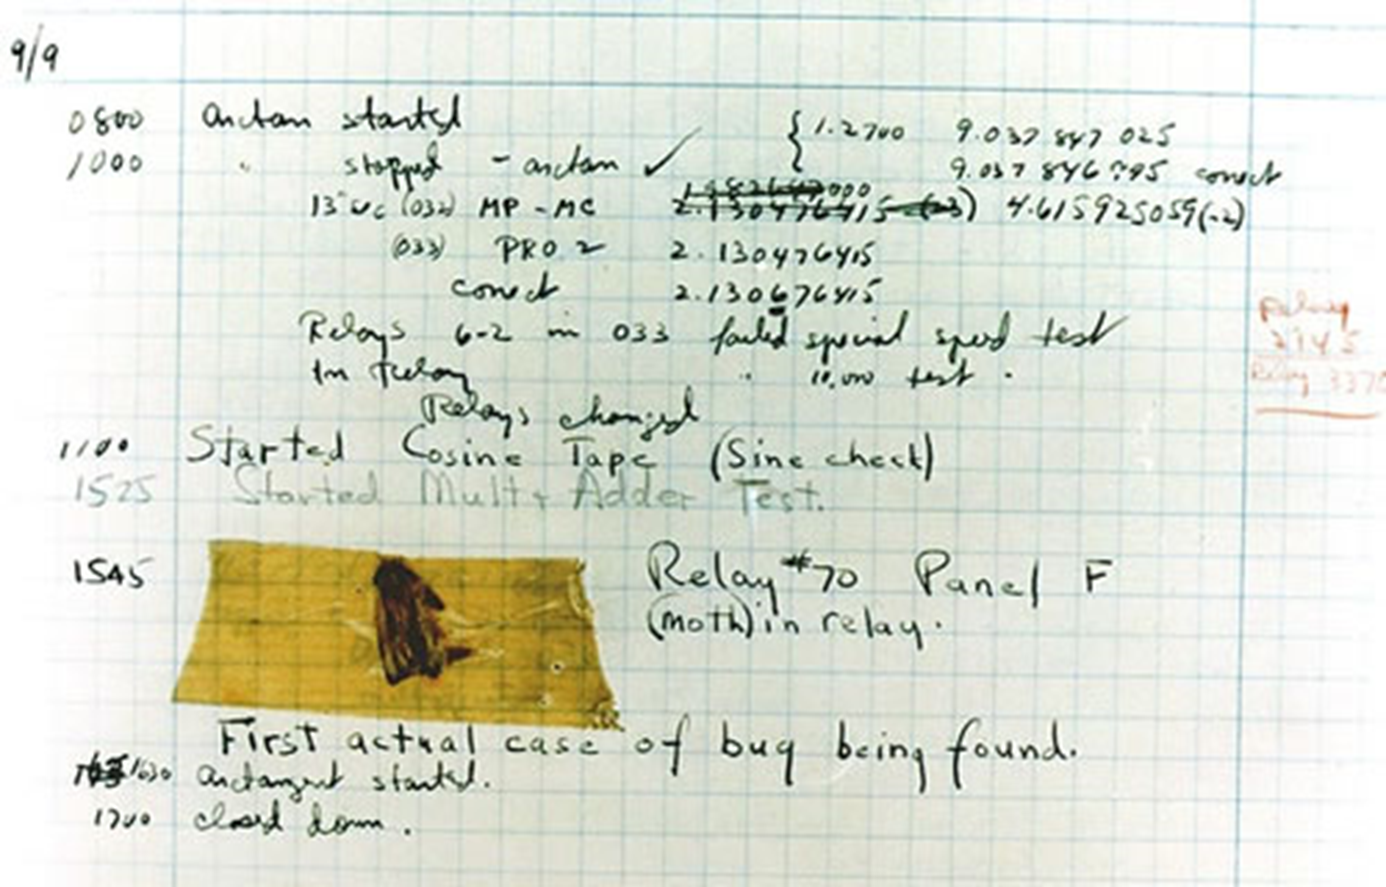 9/9
0800 Antan started { 1.2700 9.037 847 025
1000 " stopped - antan ✓ 9.037 846 995 conect
13"uc (032) MP - MC 2.130476415 (-3) 4.615925059(-2)
(033) PRO 2 2.130476415
conect 2.130676415
Relays 6-2 in 033 failed special speed test
In Relay " 10,000 test .
Relays changed
Relay
2145
Relay 3370
1100 Started Cosine Tape (Sine check)
1525 Started Mult+Adder Test.
1545 Relay #70 Panel F
(moth) in relay.
First actual case of bug being found.
1630 antangent started.
1700 closed down .